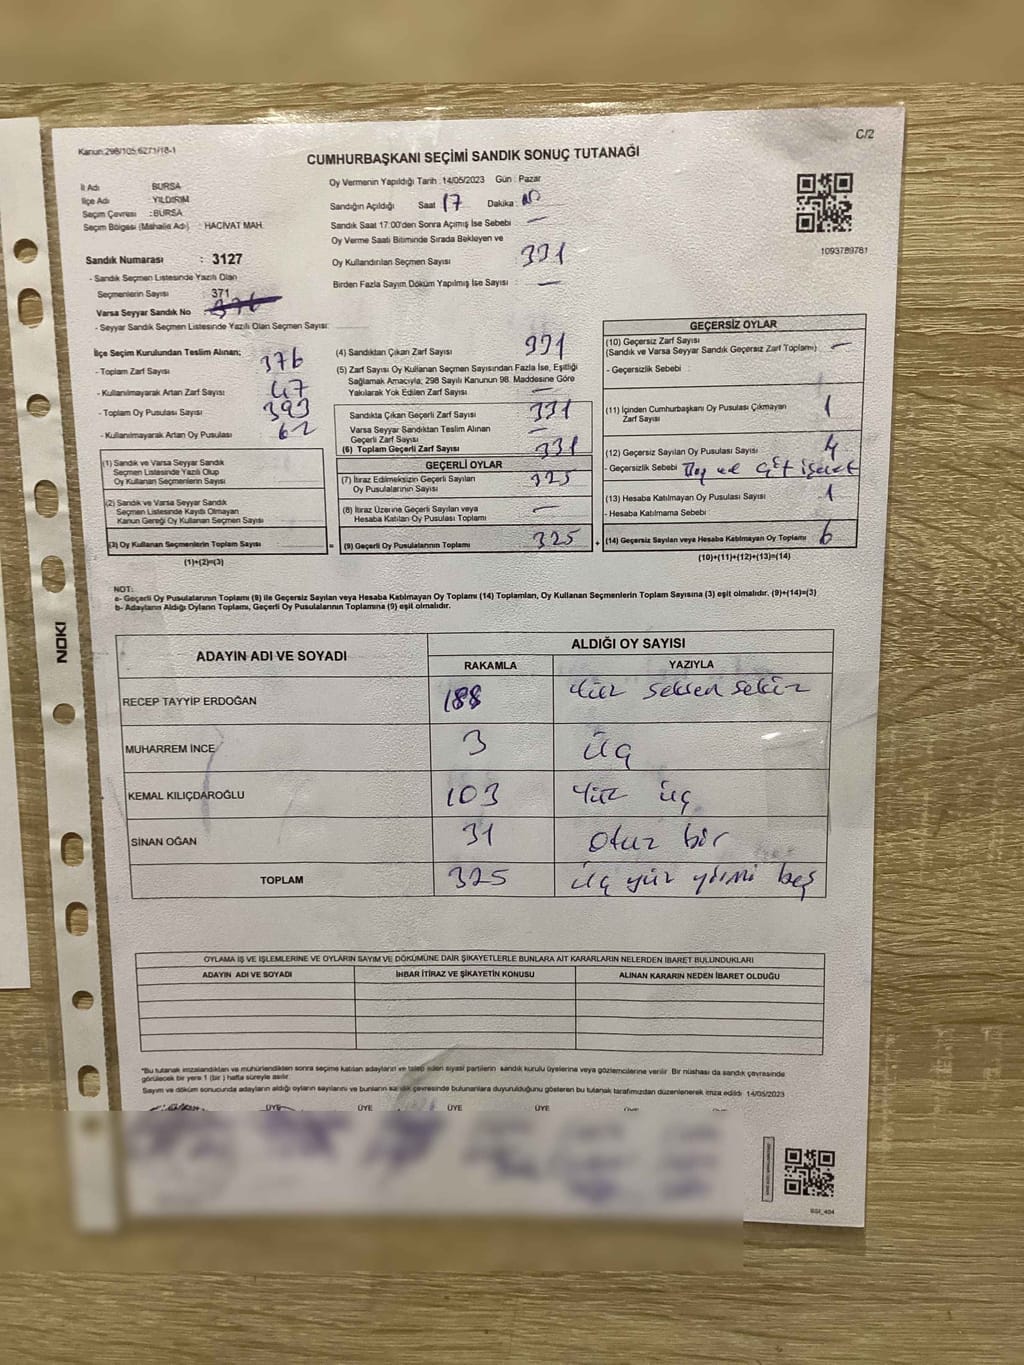 C/2
Kanun:298/105,6271/18-1
CUMHURBAŞKANI SEÇİMİ SANDIK SONUÇ TUTANAĞI
İl Adı BURSA
İlçe Adı YILDIRIM
Seçim Çevresi :BURSA
Seçim Bölgesi (Mahalle Adı) : HACİVAT MAH.
Sandık Numarası : 3127
- Sandık Seçmen Listesinde Yazılı Olan
Seçmenlerin Sayısı 371
Varsa Seyyar Sandık No
- Seyyar Sandık Seçmen Listesinde Yazılı Olan Seçmen Sayısı:
Oy Vermenin Yapıldığı Tarih :14/05/2023 Gün : Pazar
Sandığın Açıldığı Saat 17 Dakika :
Sandık Saat 17:00'den Sonra Açımış İse Sebebi : —
Oy Verme Saati Bitiminde Sırada Bekleyen ve
Oy Kullandırılan Seçmen Sayısı : 331
Birden Fazla Sayım Döküm Yapılmış İse Sayısı : —
1093789761
İlçe Seçim Kurulundan Teslim Alınan;
- Toplam Zarf Sayısı : 376
- Kullanılmayarak Artan Zarf Sayısı : 47
- Toplam Oy Pusulası Sayısı : 393
- Kullanılmayarak Artan Oy Pusulası : 62
(1) Sandık ve Varsa Seyyar Sandık
Seçmen Listesinde Yazılı Olup
Oy Kullanan Seçmenlerin Sayısı
(2) Sandık ve Varsa Seyyar Sandık
Seçmen Listesinde Kaydı Olmayan
Kanun Gereği Oy Kullanan Seçmen Sayısı
(3) Oy Kullanan Seçmenlerin Toplam Sayısı
(1)+(2)=(3)
(4) Sandıktan Çıkan Zarf Sayısı : 331
(5) Zarf Sayısı Oy Kullanan Seçmen Sayısından Fazla İse, Eşitliği
Sağlamak Amacıyla; 298 Sayılı Kanunun 98. Maddesine Göre
Yakılarak Yok Edilen Zarf Sayısı : —
Sandıkta Çıkan Geçerli Zarf Sayısı : 331
Varsa Seyyar Sandıktan Teslim Alınan
Geçerli Zarf Sayısı : —
(6) Toplam Geçerli Zarf Sayısı : 331
GEÇERLİ OYLAR
(7) İtiraz Edilmeksizin Geçerli Sayılan
Oy Pusulalarının Sayısı : 325
(8) İtiraz Üzerine Geçerli Sayılan veya
Hesaba Katılan Oy Pusulası Toplamı : —
= (9) Geçerli Oy Pusulalarının Toplamı : 325
GEÇERSİZ OYLAR
(10) Geçersiz Zarf Sayısı
(Sandık ve Varsa Seyyar Sandık Geçersiz Zarf Toplamı) —
- Geçersizlik Sebebi :
(11) İçinden Cumhurbaşkanı Oy Pusulası Çıkmayan
Zarf Sayısı : 1
(12) Geçersiz Sayılan Oy Pusulası Sayısı : 4
- Geçersizlik Sebebi ve çift işaret
(13) Hesaba Katılmayan Oy Pusulası Sayısı : 1
- Hesaba Katılmama Sebebi
+ (14) Geçersiz Sayılan veya Hesaba Katılmayan Oy Toplamı 6
(10)+(11)+(12)+(13)=(14)
NOT:
a- Geçerli Oy Pusulalarının Toplamı (9) ile Geçersiz Sayılan veya Hesaba Katılmayan Oy Toplamı (14) Toplamları, Oy Kullanan Seçmenlerin Toplam Sayısına (3) eşit olmalıdır. (9)+(14)=(3)
b- Adayların Aldığı Oyların Toplamı, Geçerli Oy Pusulalarının Toplamına (9) eşit olmalıdır.
ADAYIN ADI VE SOYADI
ALDIĞI OY SAYISI
RAKAMLA YAZIYLA
RECEP TAYYİP ERDOĞAN 188 Yüz seksen sekiz
MUHARREM İNCE 3 üç
KEMAL KILIÇDAROĞLU 103 Yüz üç
SİNAN OĞAN 31 otuz bir
TOPLAM 325 üç yüz yirmi beş
OYLAMA İŞ VE İŞLEMLERİNE VE OYLARIN SAYIM VE DÖKÜMÜNE DAİR ŞİKAYETLERLE BUNLARA AİT KARARLARIN NELERDEN İBARET BULUNDUKLARI
ADAYIN ADI VE SOYADI İHBAR İTİRAZ VE ŞİKAYETİN KONUSU ALINAN KARARIN NEDEN İBARET OLDUĞU
"Bu tutanak imzalandıktan ve mühürlendikten sonra seçime katılan adayların ve talep eden siyasi partilerin sandık kurulu üyelerine veya gözlemcilerine verilir. Bir nüshası da sandık çevresinde
görülecek bir yere 1 (bir ) hafta süreyle asılır.
Sayım ve döküm sonucunda adayların aldığı oyların sayılarını ve bunların sandık çevresinde bulunanlara duyurulduğunu gösteren bu tutanak tarafımızdan düzenlenerek imza edildi 14/05/2023
ÜYE ÜYE ÜYE ÜYE
NOKI